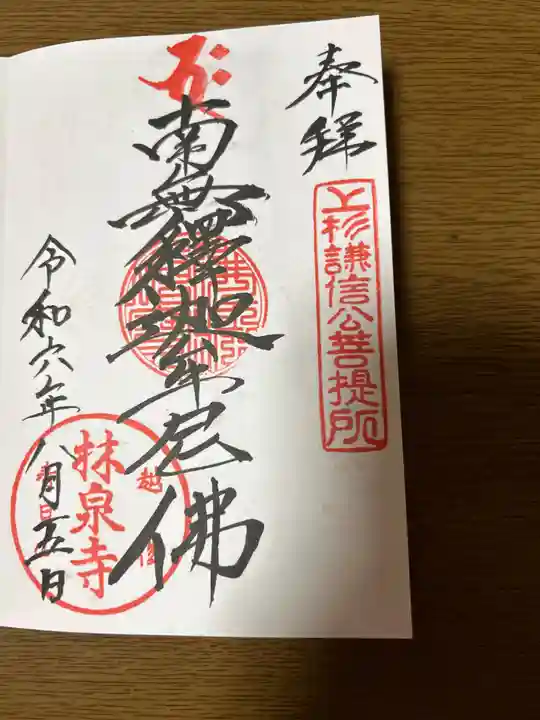 奉拝
上杉謙信公菩提所
南無釋迦牟尼佛
令和六年八月五日
越後
春日山
林泉寺